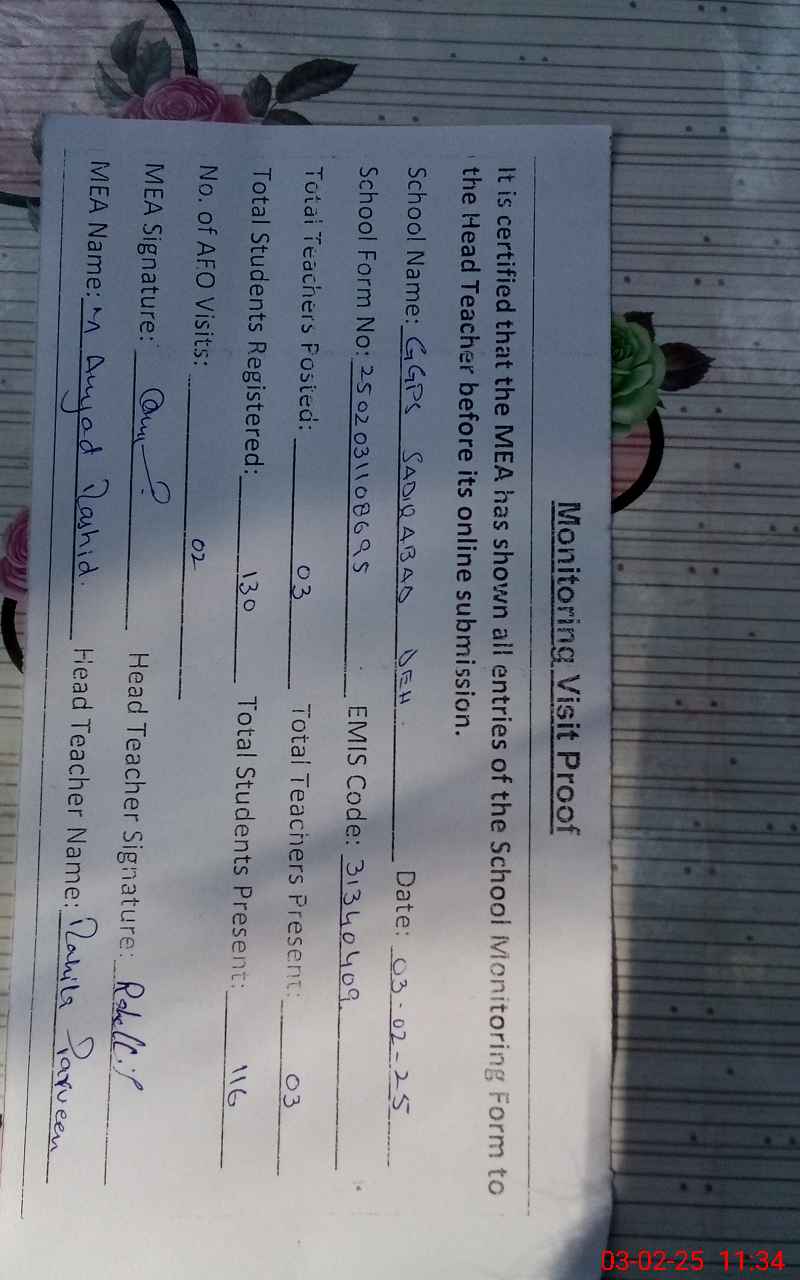 Monitoring Visit Proof
It is certified that the MEA has shown all entries of the School Monitoring Form to
the Head Teacher before its online submission.
School Name: GGPS SADIQ ABAD DEH. Date: 03-02-25
School Form No: 2502031108695 EMIS Code: 31340409.
Total Teachers Posted: 03 Total Teachers Present: 03
Total Students Registered: 130 Total Students Present: 116
No. of AEO Visits: 02
MEA Signature: Head Teacher Signature:
MEA Name: M Amjad Rashid. Head Teacher Name: Rahila Parveen
03-02-25 11:34